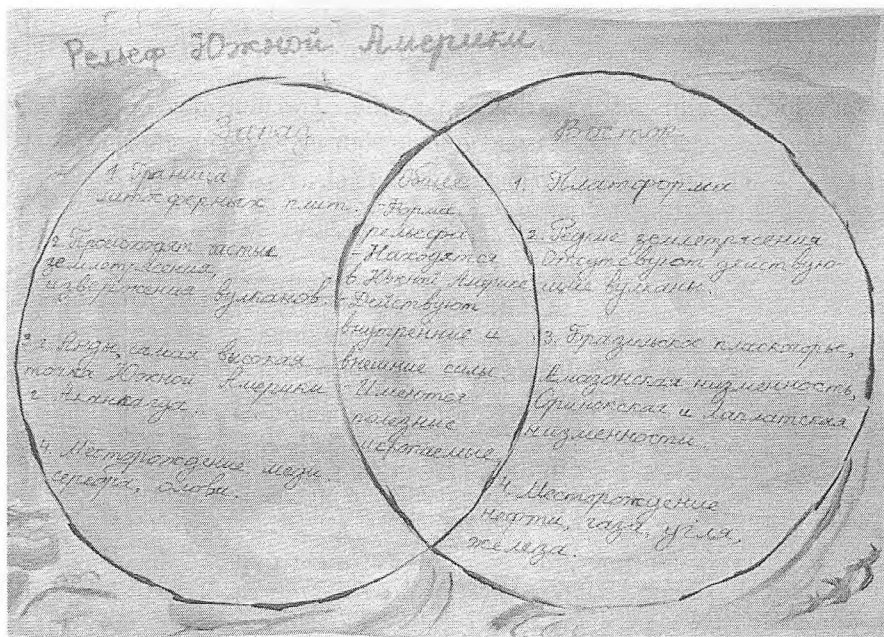 Рельеф Южной Америки
Запад
1. Граница
литосферных плит.
2. Происходят частые
землетрясения,
извержения вулканов.
3. г. Анды, самая высокая
точка Южной Америки
г. Аканкагуа.
4. Месторождение меди,
серебра, олова.
Общее
- Форма
рельефа
- Находятся
в Южной Америке
- Действуют
внутренние и
внешние силы.
Имеются
полезные
ископаемые
Восток
1. Платформа
2. Редкие землетрясения
Отсутсвуют действую-
щие вулканы.
3. Бразильское плоскогорье,
Амазонская низменность,
Оринокская и Лаплатская
низменности.
4. Месторождение
нефти, газа, угля,
железа.